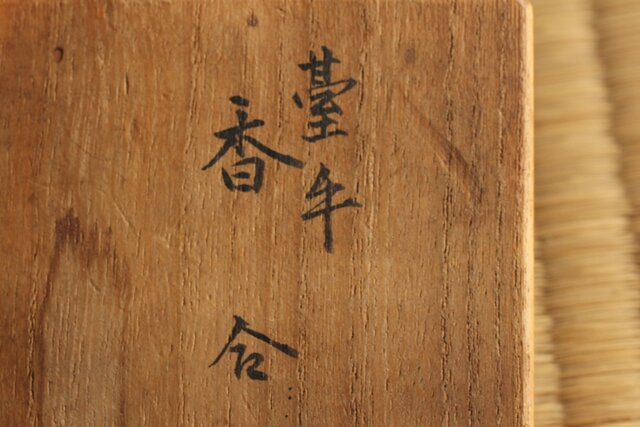 臺牛
香合